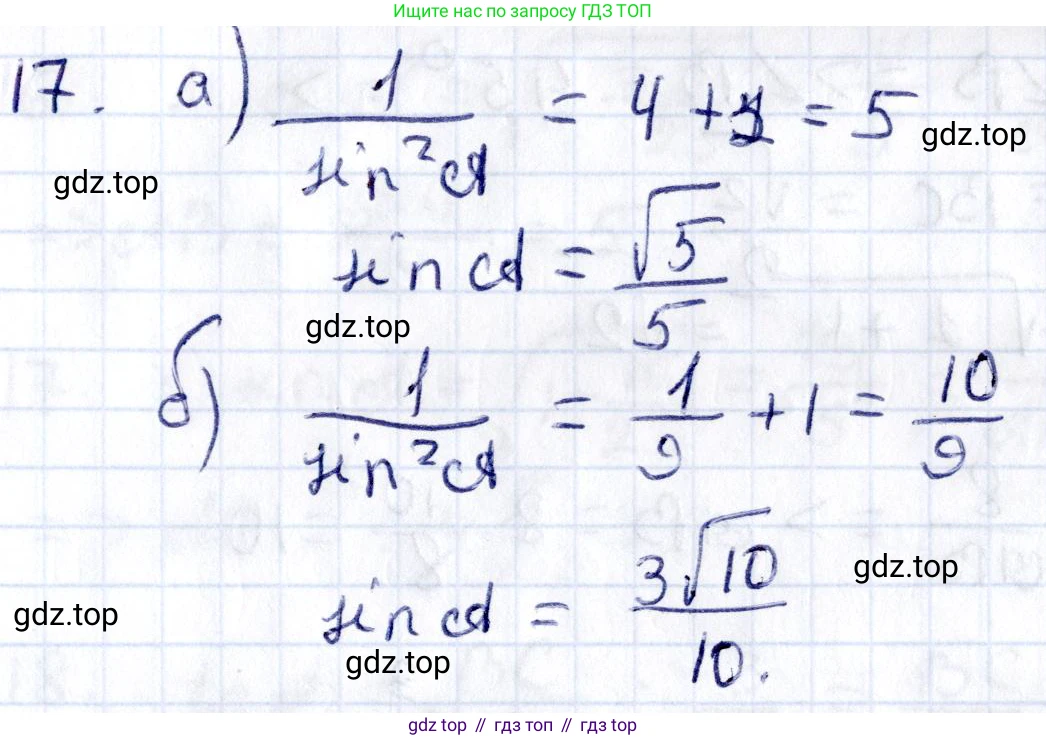 Ищите нас по запросу ГДЗ ТОП
17. а) 1/sin²α = 4 + 1 = 5
gdz.top
gdz.top
sin α = √5/5
gdz.top
б) 1/sin²α = 1/9 + 1 = 10/9
sin α = 3√10/10.
gdz.top
gdz.top
gdz.top
gdz top // гдз топ // gdz top